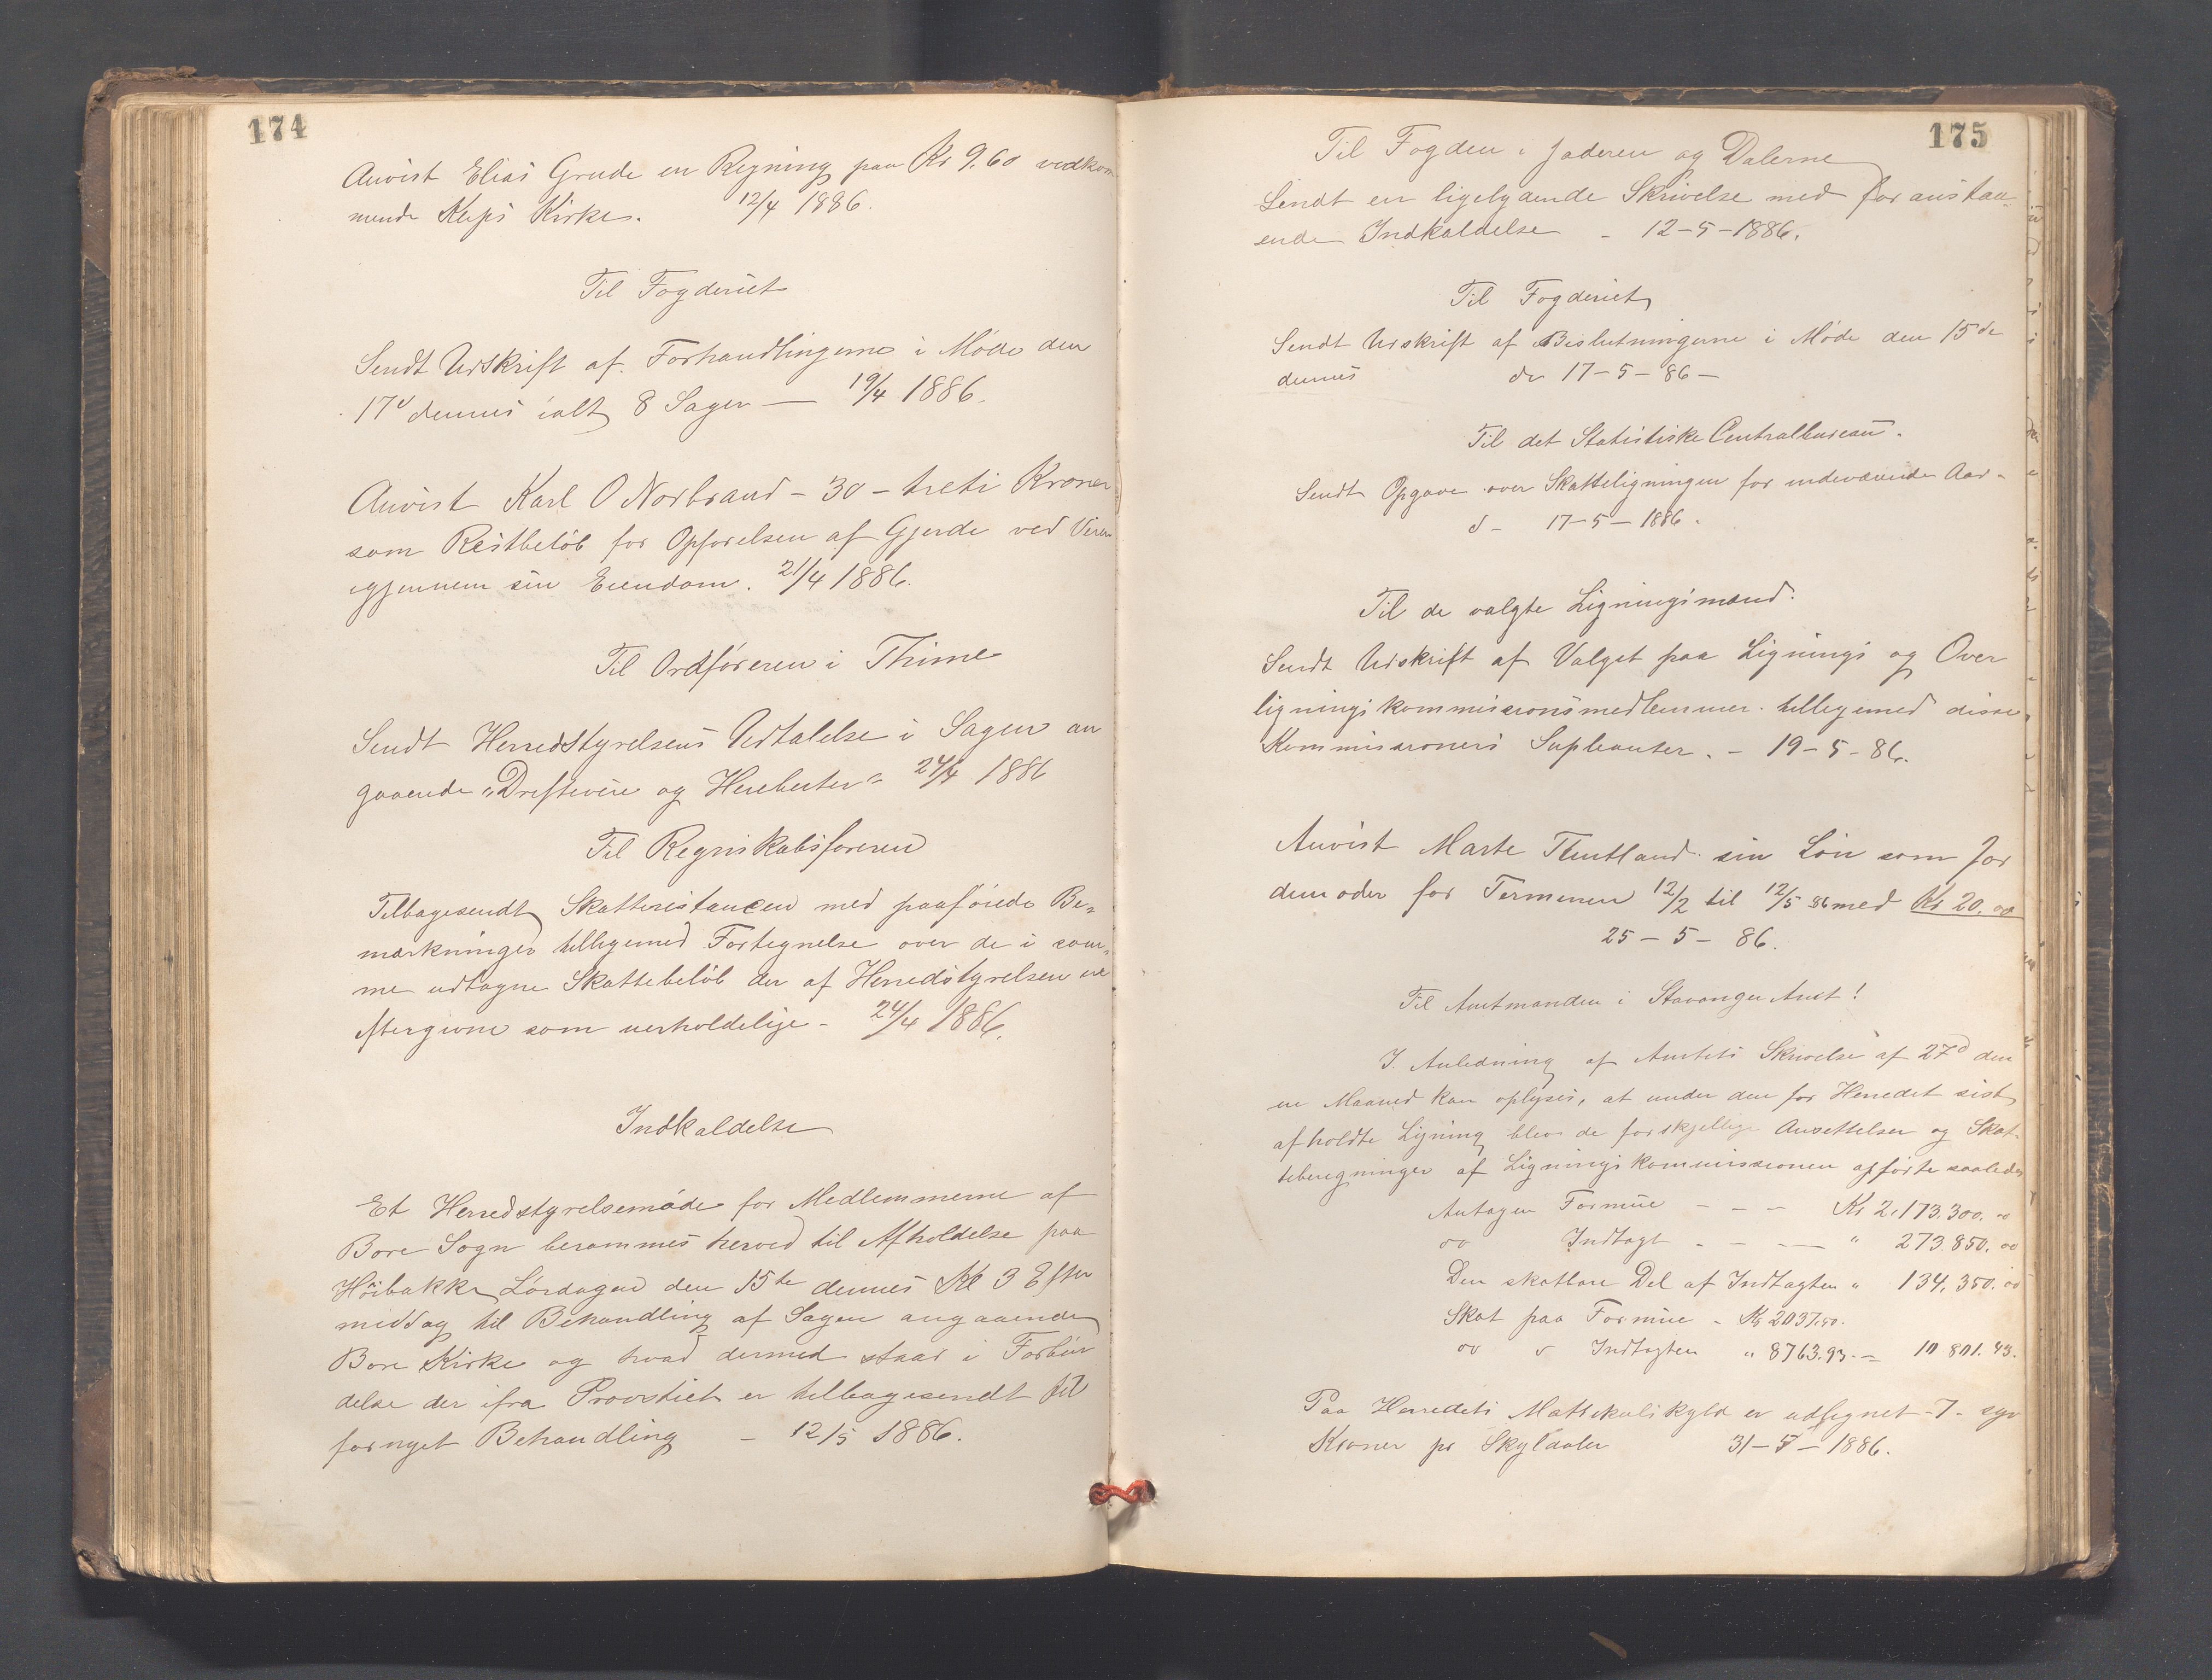 174
Anvist Elias Grude en Regning paa Kr 9.60 vedkom
mende Kleps Kirke. 12/4 1886.
Til Fogderiet
Sendt Udskrift af Forhandlingerne i Møde den
17d dennes ialt 8 Sager — 19/4 1886.
Anvist Karl O Norbraud - 30 - treti Kroner
som Restbeløb for Opførelsen af Gjerde ved Veien
igjennem sin Eiendom. 21/4 1886.
Til Ordføreren i Thime
Sendt Herredstyrelsens Udtalelse i Sagen an
gaaende "Drifteveie og 24/4 1886
Til Regnskabsføreren
Tilbagesendt Skatterestancen med paaførede Be=
mærkninger tilligemed Fortegnelse over de i sam=
me udtagne Skattebeløb der af Herredstyrelsen er
eftergivne som uerholdelige - 24/4 1886.
Indkaldelse
Et Herredstyrelsemøde for Medlemmerne af
Bore Sogn berammes herved til Afholdelse paa
Høibakke Lørdagen den 15de dennes Kl 3 Efter
middag til Behandling af Sagen angaaende
Bore Kirke og hvad dermed staar i Forbin
delse der ifra Provstiet er tilbagesendt til
fornyet Behandling - 12/5 1886.
175
Til Fogden i Jæderen og Dalerne
Sendt en ligelydende Skrivelse med foranstaa=
ende Indkaldelse - 12-5-1886.
Til Fogderiet
Sendt Udskrift af Beslutningerne i Møde den 15de
dennes d 17-5-86 -
Til det Statistiske Centralbureau.
Sendt Opgave over Skatteligningen for indeværende Aar -
d - 17-5-1886.
Til de valgte Ligningsmænd.
Sendt Udskrift af Valget paa Lignings og Over
ligningskommissionsmedlemmer tilligemed disse
Kommissioners Supleanter. - 19-5-86.
Anvist Marte Tlutland sin Løn som Jor
demoder for Terminen 12/2 til 12/5 86 med Kr 20.00
25-5-86.
Til Amtmanden i Stavanger Amt!
I Anledning af Amtets Skrivelse af 27d den
ne Maaned kan oplyses, at under den for Herredet sidst
afholdte Ligning blev de forskjellige Ansettelser og Skat
teberegninger af Ligningskommissionen opførte saaledes
Antagen Formue - - - Kr 2,173.300.00
do Indtægt - - - " 273.850.00
Den skatbare Del af Indtægten " 134,350.00
Skat paa Formue - Kr 2037.50.
do " Indtægten " 8763.93. = 10 801.43.
Paa Herredets Matrikulskyld er udlignet -7- syv
Kroner pr Skyldaler 31-5-1886.